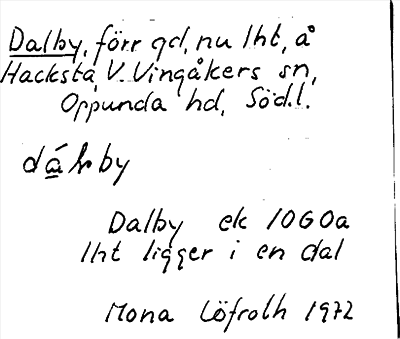 Dalby, förr gd, nu lht, å
Hacksta, V. Vingåkers sn,
Oppunda hd, Södl.
Dalby ek 10G0a
lht ligger i en dal
Mona Löfroth 1972